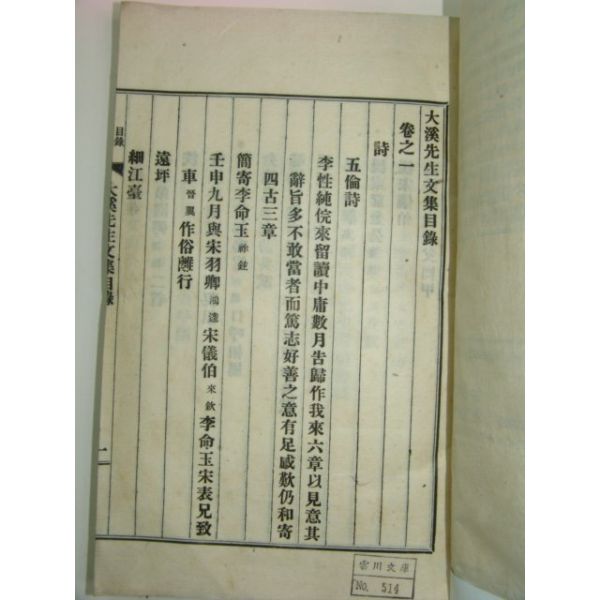 大溪先生文集目錄
卷之一
詩
五倫詩
李性純倥來留讀中庸數月告歸作我來六章以見意其
辭旨多不敢當者而篤志好善之意有足感歎仍和寄
四古三章
簡寄李命玉
壬申九月與宋羽卿鴻逵宋儀伯來欽李命玉宋表兄致
車晉翼作俗離行
遠坪
細江臺
目錄
大溪先生文集目錄
一
雲川文庫
No. 514